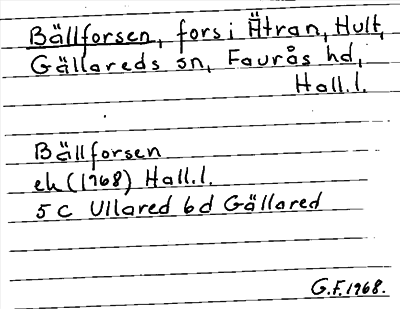 Bällforsen, fors i Ätran, Hult,
Gällareds sn, Faurås hd,
Hall.l.
Bällforsen
ek (1968) Hall.l.
5 C Ullared 6d Gällared
G.F. 1968.